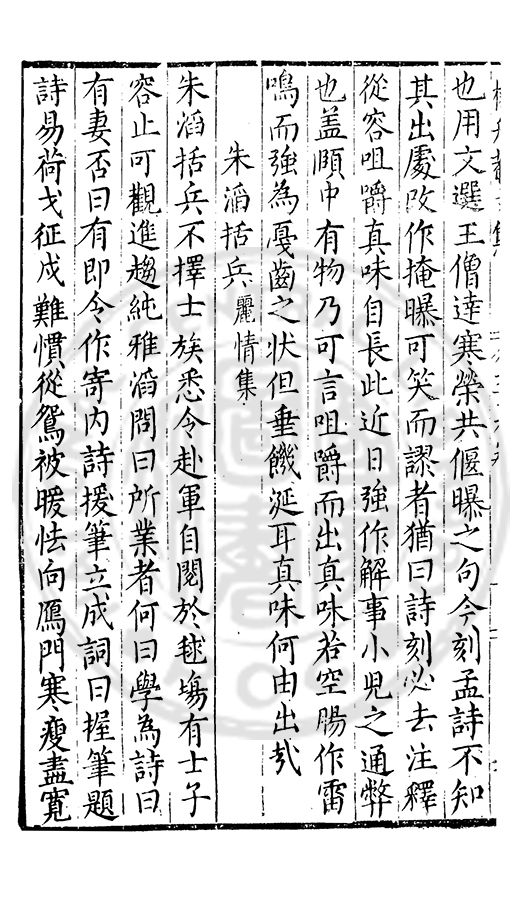 也用文選王僧達寒榮共偃曝之句今刻孟詩不知
其出處改作掩曝可笑而謬者猶曰詩刻必去注釋
從容咀嚼真味自長此近日強作解事小兒之通弊
也盖頤中有物乃可言咀嚼而出真味若空腸作雷
鳴而強為戞齒之状但垂饑涎耳真味何由出㢤
朱滔括兵麗情集
朱滔括兵不擇士族悉令赴軍自閱於毬場有士子
容止可觀進趨純雅滔問曰所業者何曰學為詩曰
有妻否曰有即令作寄内詩援筆立成詞曰握筆題
詩易荷戈征戍難慣從鴛被暖怯向鴈門寒瘦盡寬